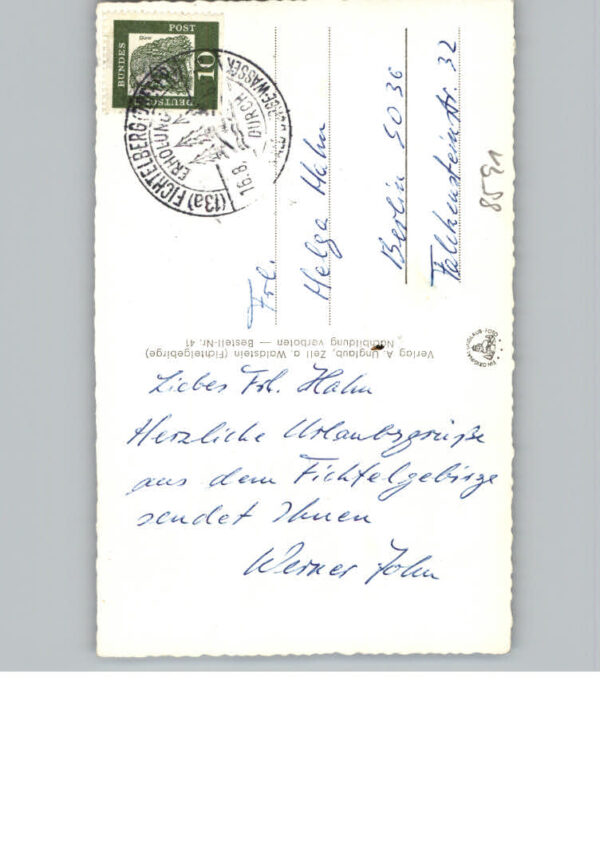 Liebes Frl. Hahn
Herzliche Urlaubsgrüße
aus dem Fichtelgebirge
sendet Ihnen
Werner John
Frl.
Helga Hahn
Berlin SO 36
Falckensteinstr. 32
8591
Verlag A. Unglaub, Zell a. Waldstein (Fichtelgebirge)
Nachbildung verboten — Bestell-Nr. 41
DEUTSCHE
BUNDES
POST
10
(13a) FICHTELBERG
ERHOLUNG
DURCH
16.8.